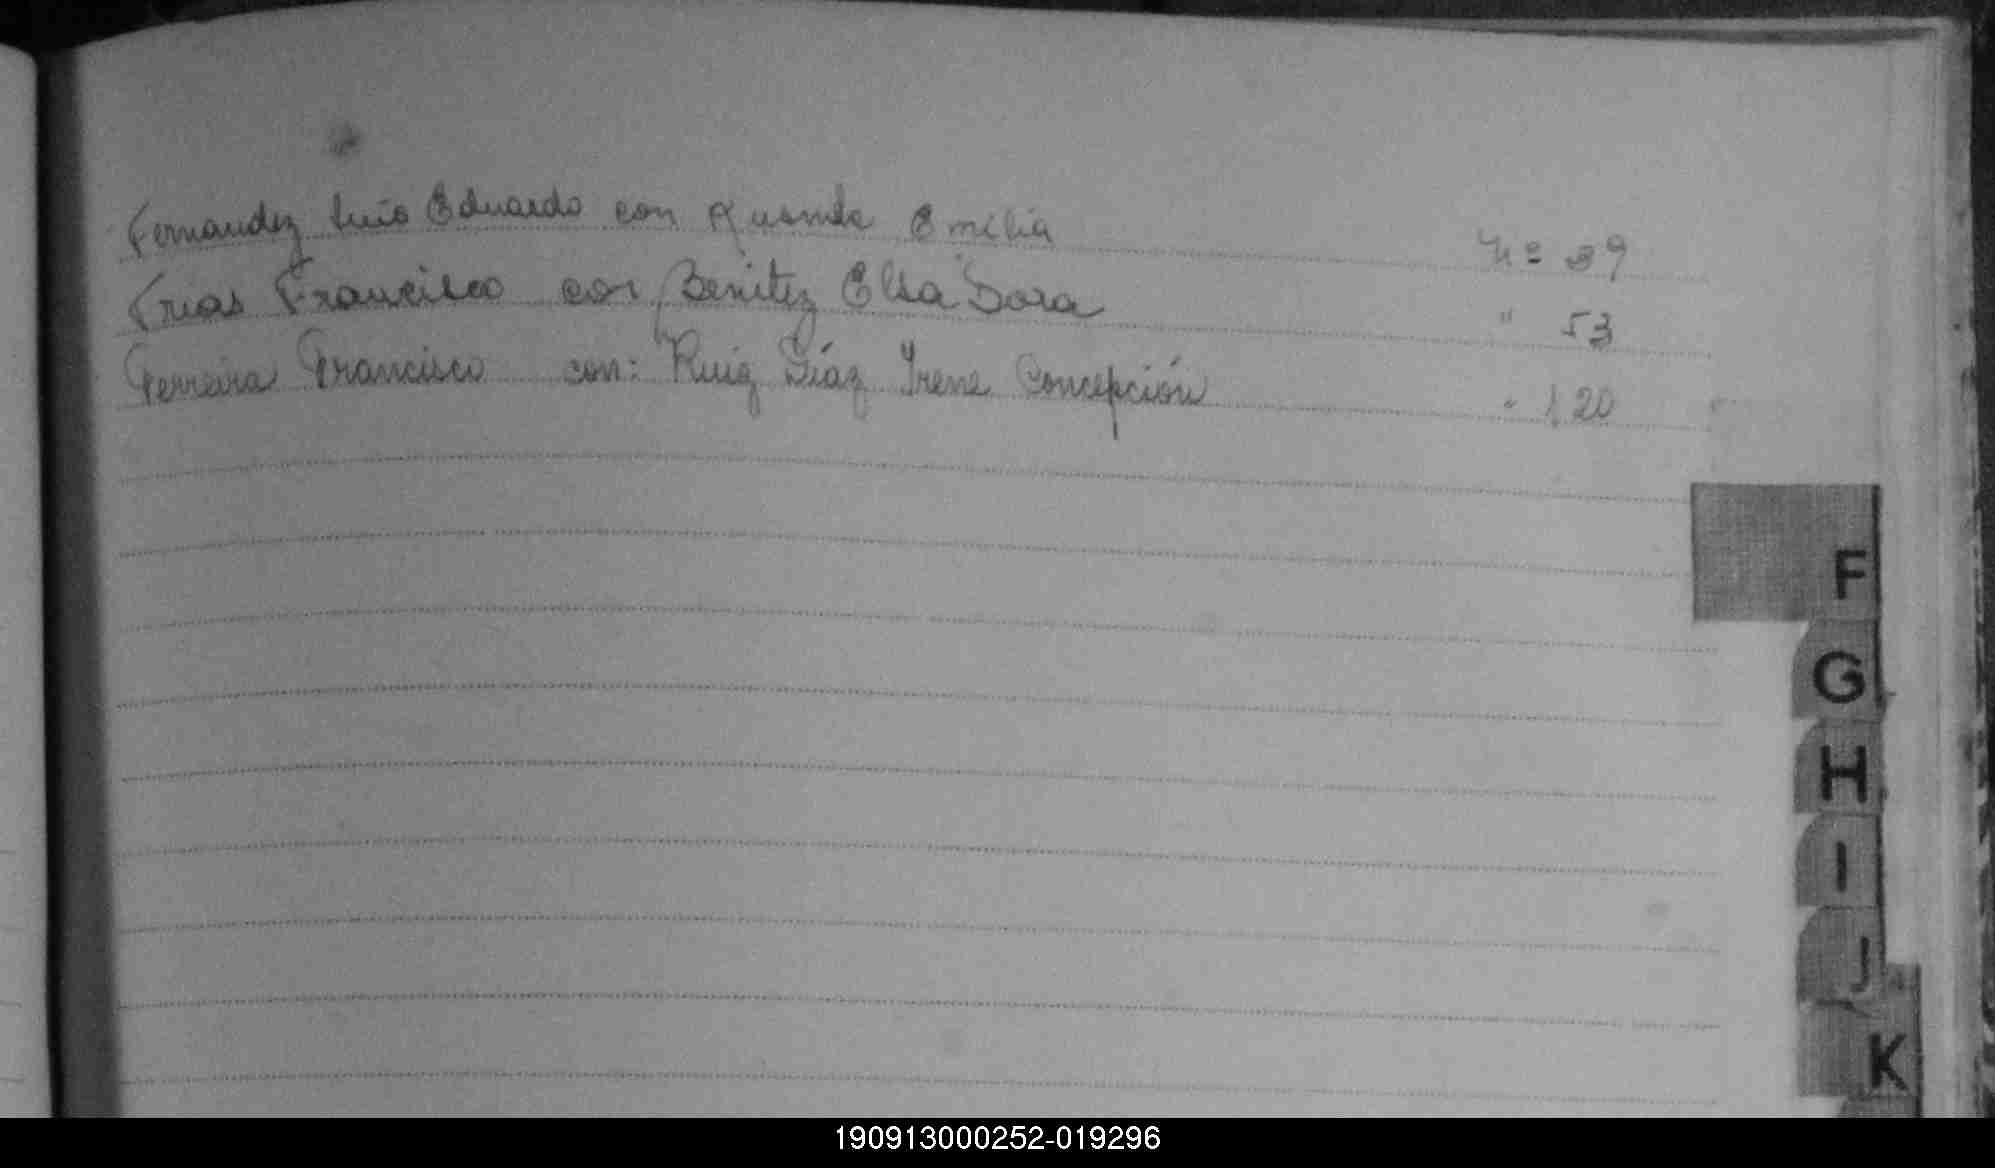 Fernandez Luis Eduardo con Emilia Nº 39
Frias Francisco con Benitez Elsa Dora " 53
Ferreira Francisco con: Ruiz Díaz Irene Concepción " 120
F
G
H
I
J
K
190913000252-019296